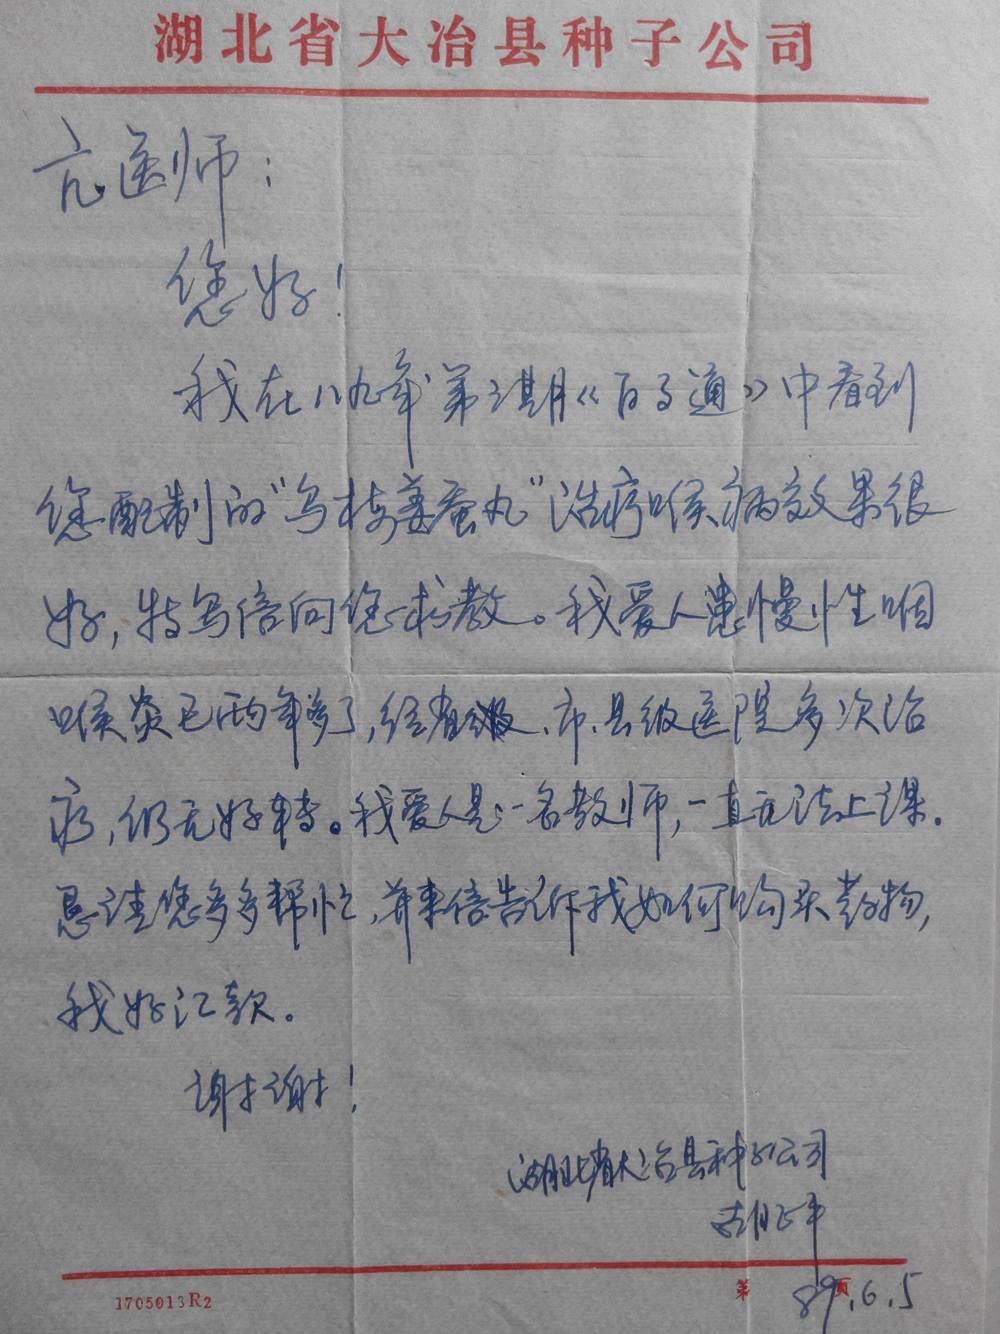 湖北省大冶县种子公司
亢医师：
您好！
我在八九年第2期《百事通》中看到
您配制的“乌梅姜蚕丸”治疗喉病效果很
好，特写信向您求教。我爱人患慢性咽
喉炎已两年多了，经省级、市、县级医院多次治
疗，仍无好转。我爱人是一名教师，一直无法上课.
恳请您多多帮忙，并来信告诉我如何购买药物，
我好汇款。
谢谢！
湖北省大冶县种子公司
胡 平
1705013R2
第 页
89.6.5